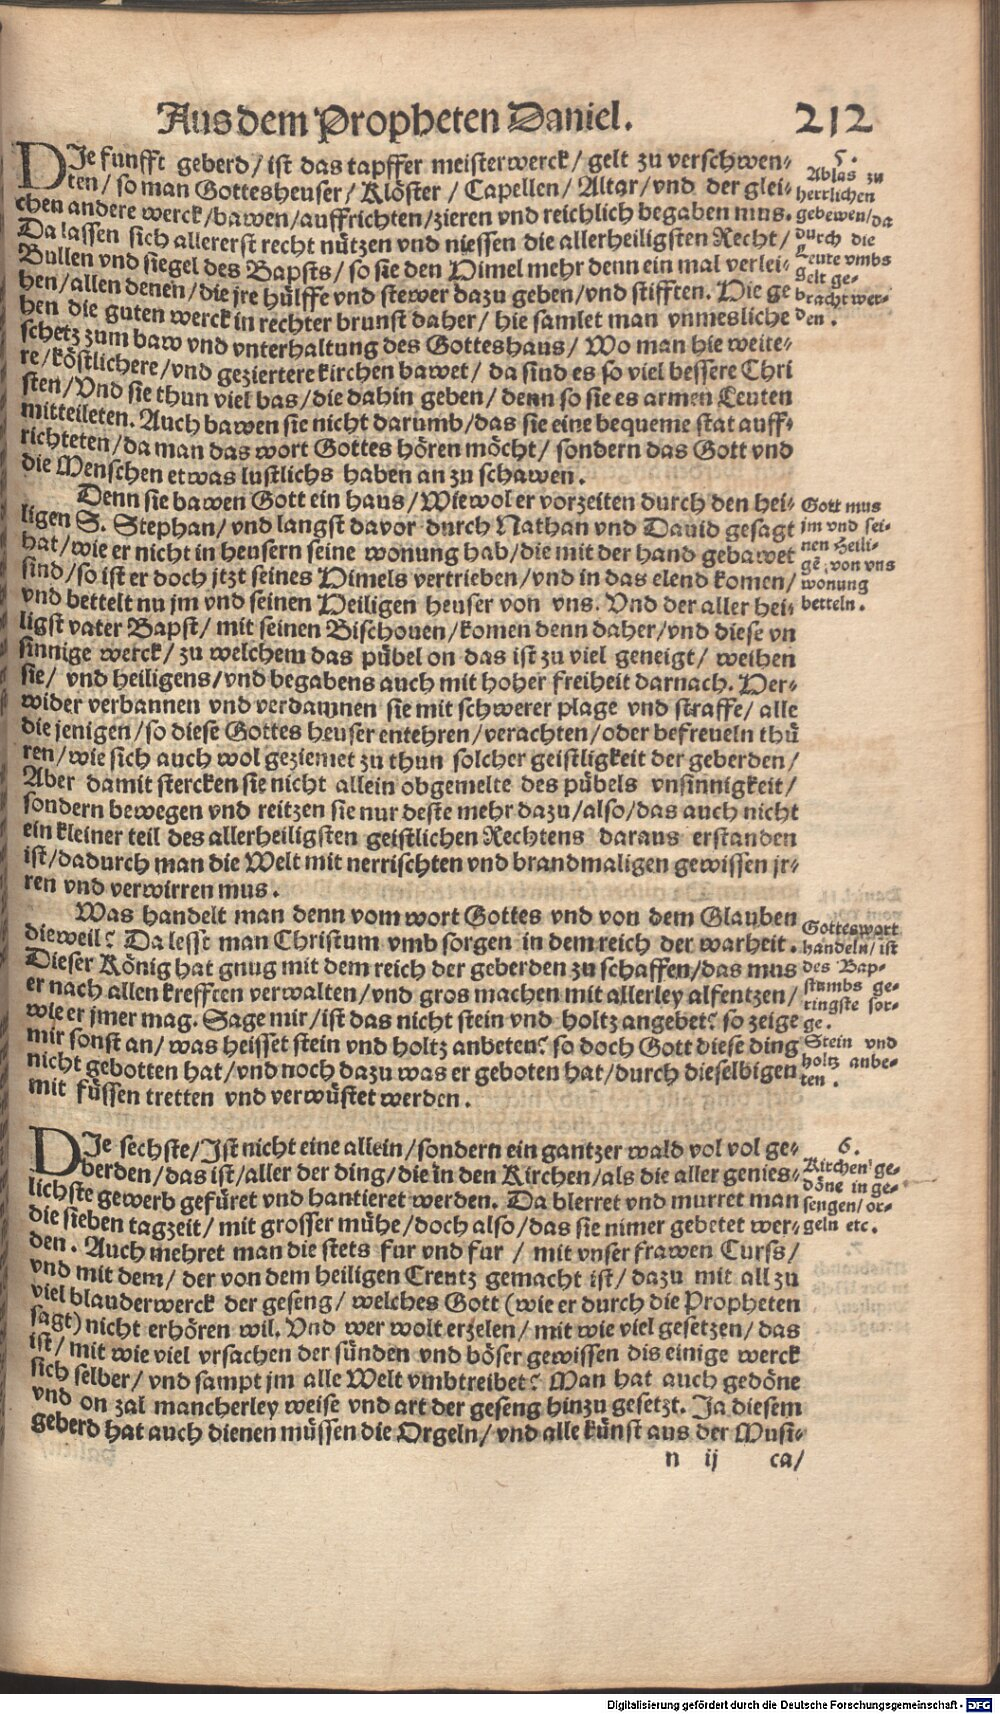 Aus dem Propheten Daniel. 212
DIe funfft geberd/ ist das tapffer meisterwerck/ gelt zu verschwen-
ten/ so man Gottesheuser/ Klöster/ Capellen/ Altar/ vnd der glei-
chen andere werck/ bawen/ auffrichten/ zieren vnd reichlich begaben mus.
Da lassen sich allererst recht nützen vnd niessen die allerheiligsten Recht/
Bullen vnd siegel des Bapsts/ so sie den Himel mehr denn ein mal verlei-
hen/ allen denen/ die jre hülffe vnd stewer dazu geben/ vnd stifften. Hie ge
hen die guten werck in rechter brunst daher/ hie samlet man vnmesliche
schetz zum baw vnd vnterhaltung des Gotteshaus/ Wo man hie weite-
re/ köstlichere/ vnd geziertere kirchen bawet/ da sind es so viel bessere Chri
sten/ Vnd sie thun viel bas/ die dahin geben/ denn so sie es armen Leuten
mitteileten. Auch bawen sie nicht darumb/ das sie eine bequeme stat auff-
richteten/ da man das wort Gottes hören möcht/ sondern das Gott vnd
die Menschen etwas lustlichs haben an zu schawen.
5.
Ablas zu
herrlichen
gebewen/ da
durch die
Leute vmbs
gelt ge-
bracht wer-
den.
Denn sie bawen Gott ein haus/ Wiewol er vorzeiten durch den hei-
ligen S. Stephan/ vnd langst davor durch Nathan vnd Dauid gesagt
hat/ wie er nicht in heusern seine wonung hab/ die mit der hand gebawet
sind/ so ist er doch jtzt seines Himels vertrieben/ vnd in das elend komen/
vnd bettelt nu jm vnd seinen Heiligen heuser von vns. Vnd der aller hei-
ligst vater Bapst/ mit seinen Bischouen/ komen denn daher/ vnd diese vn
sinnige werck/ zu welchem das pübel on das ist zu viel geneigt/ weihen
sie/ vnd heiligens/ vnd begabens auch mit hoher freiheit darnach. Her-
wider verbannen vnd verdamnen sie mit schwerer plage vnd straffe/ alle
die jenigen/ so diese Gottes heuser entehren/ verachten/ oder befreueln thü
ren/ wie sich auch wol geziemet zu thun solcher geistligkeit der geberden/
Aber damit stercken sie nicht allein obgemelte des pübels vnsinnigkeit/
sondern bewegen vnd reitzen sie nur deste mehr dazu/ also/ das auch nicht
ein kleiner teil des allerheiligsten geistlichen Rechtens daraus erstanden
ist/ dadurch man die Welt mit nerrischten vnd brandmaligen gewissen jr-
ren vnd verwirren mus.
Gott mus
jm vnd sei-
nen Heili-
gē, von vns
wonung
betteln.
Was handelt man denn vom wort Gottes vnd von dem Glauben
dieweil? Da lesst man Christum vmb sorgen in dem reich der warheit.
Dieser König hat gnug mit dem reich der geberden zu schaffen/ das mus
er nach allen krefften verwalten/ vnd gros machen mit allerley alfentzen/
wie er jmer mag. Sage mir/ ist das nicht stein vnd holtz angebet? so zeige
mir sonst an/ was heisset stein vnd holtz anbeten? so doch Gott diese ding
nicht gebotten hat/ vnd noch dazu was er geboten hat/ durch dieselbigen
mit füssen tretten vnd verwüstet werden.
Gotteswort
handeln/ ist
des Bap-
stumbs ge-
ringste sor-
ge.
Stein vnd
holtz anbe-
ten.
DIe sechste/ Ist nicht eine allein/ sondern ein gantzer wald vol vol ge-
berden/ das ist/ aller der ding/ die in den Kirchen/ als die aller genies-
lichste gewerb gefüret vnd hantieret werden. Da blerret vnd murret man
die sieben tagzeit/ mit grosser mühe/ doch also/ das sie nimer gebetet wer-
den. Auch mehret man die stets fur vnd fur/ mit vnser frawen Curss/
vnd mit dem/ der von dem heiligen Creutz gemacht ist/ dazu mit all zu
viel blauderwerck der geseng/ welches Gott (wie er durch die Propheten
sagt) nicht erhören wil. Vnd wer wolt erzelen/ mit wie viel gesetzen/ das
ist/ mit wie viel vrsachen der sünden vnd böser gewissen dis einige werck
sich selber/ vnd sampt jm alle Welt vmbtreibet? Man hat auch gedöne
vnd on zal mancherley weise vnd art der geseng hinzu gesetzt. Ja diesem
geberd hat auch dienen müssen die Orgeln/ vnd alle künst aus der Musi-
6.
Kirchen ge-
döne in ge-
sengen/ or-
geln etc.
n ij ca/
Digitalisierung gefördert durch die Deutsche Forschungsgemeinschaft - DFG